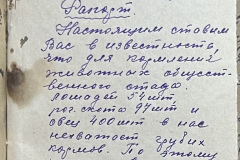 Рапорт
Настоящим ставим
Вас в известность,
что для кормления
животных общест-
венного стада
лошадей 54 шт
рог. скота 97 шт и
овец 400 шт в нас
нехватает грубых
кормов. По этому